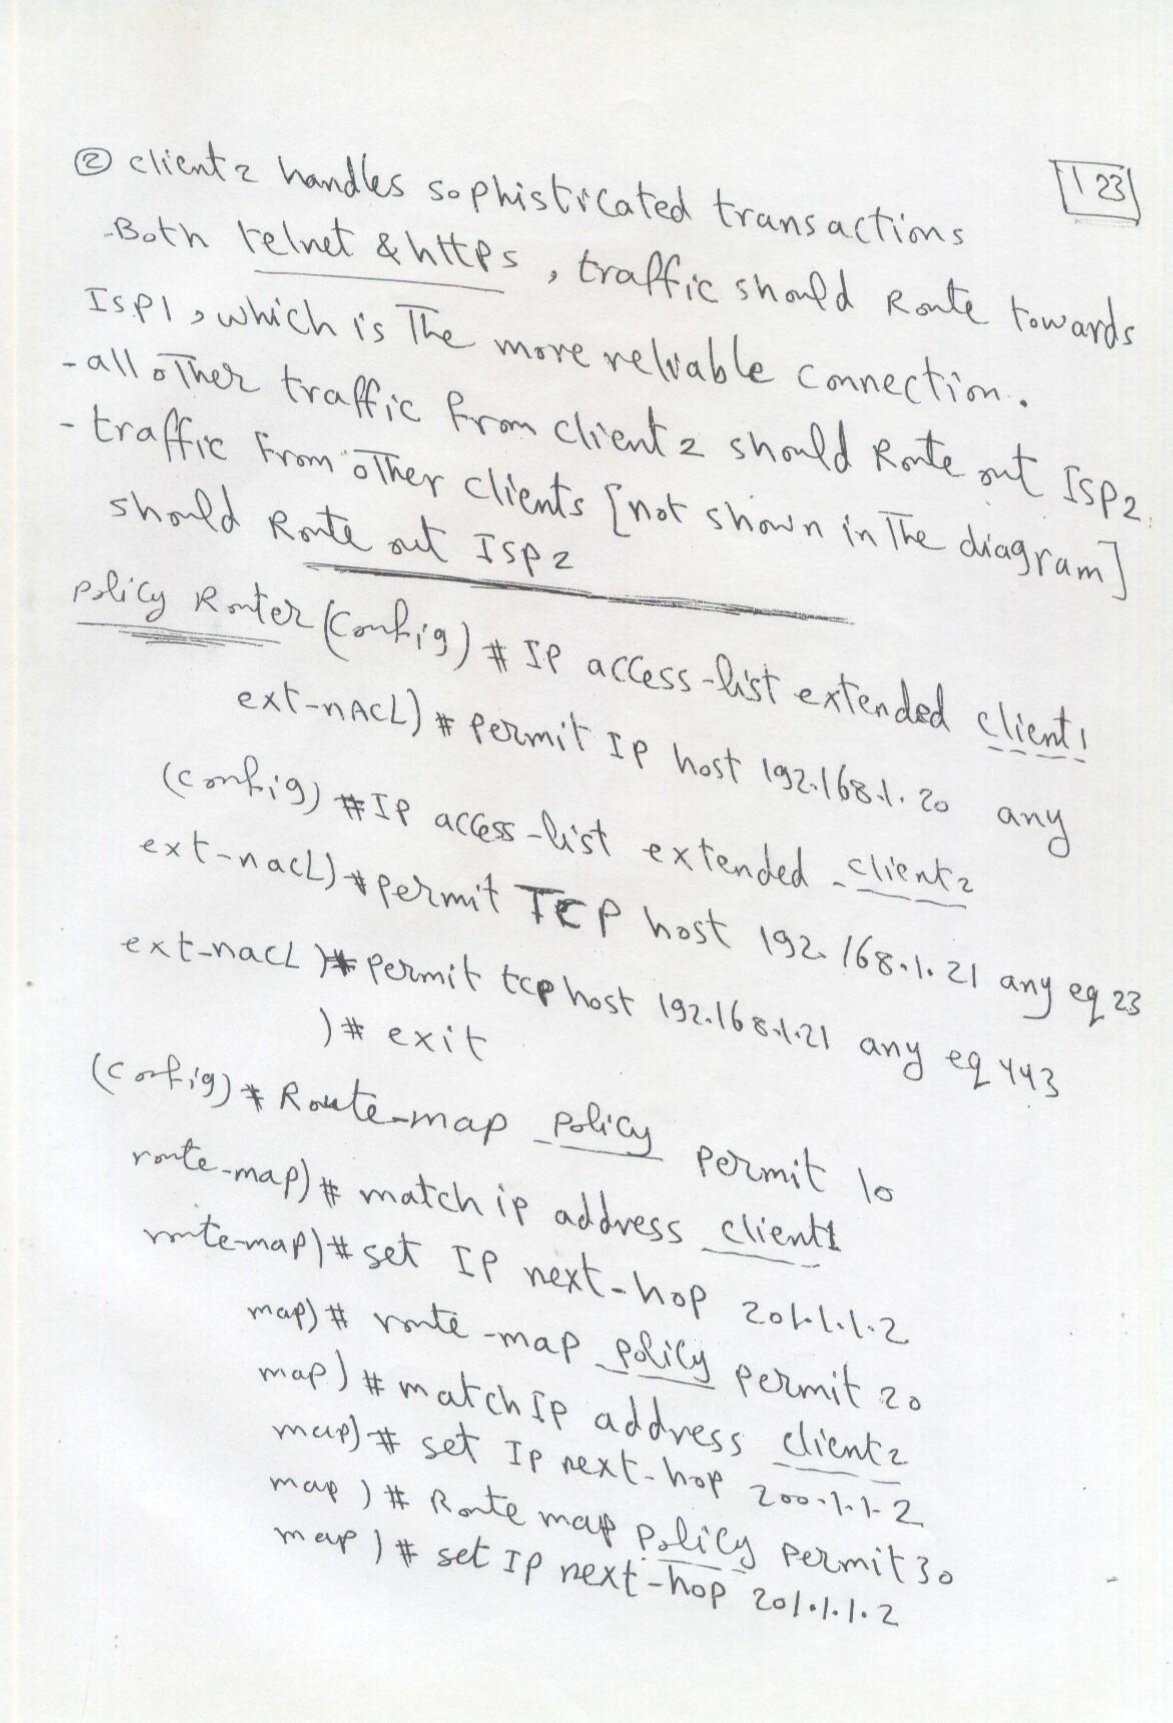 123
② client2 handles sophisticated transactions
-Both telnet & https, traffic should Route towards
ISP1, which is The more reliable connection.
- all other traffic from client2 should Route out ISP2.
- traffic From other clients [not shown in The diagram]
should Route out ISP2
policy Router (Config) # IP access-list extended client1
ext-nACL) # permit IP host 192.168.1.20 any
(config) # IP access-list extended client2
ext-nacL) # permit TCP host 192.168.1.21 any eq 23
ext-nacL) # permit tcp host 192.168.1.21 any eq 443
) # exit
(config) # Route-map policy permit 10
route-map) # match ip address client1
route-map) # set IP next-hop 201.1.1.2
map) # route-map policy permit 20
map) # match IP address client2
map) # set Ip next-hop 200.1.1.2
map) # Route map policy permit 30
map) # set IP next-hop 201.1.1.2